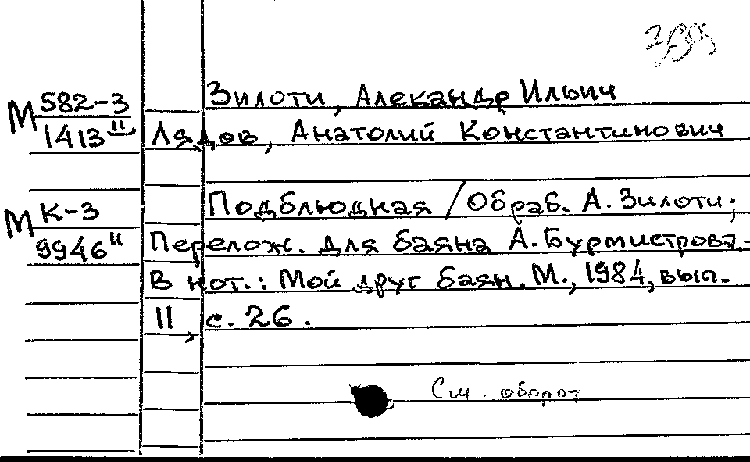 М 582-3
1413 II
Зилоти, Александр Ильич
Лядов, Анатолий Константинович
М К-3
9946 II
Подблюдная / Обраб. А. Зилоти;
Перелож. для баяна А. Бурмистрова.
В нот.: Мой друг баян. М., 1984, вып.
11 с. 26.
См. оборот